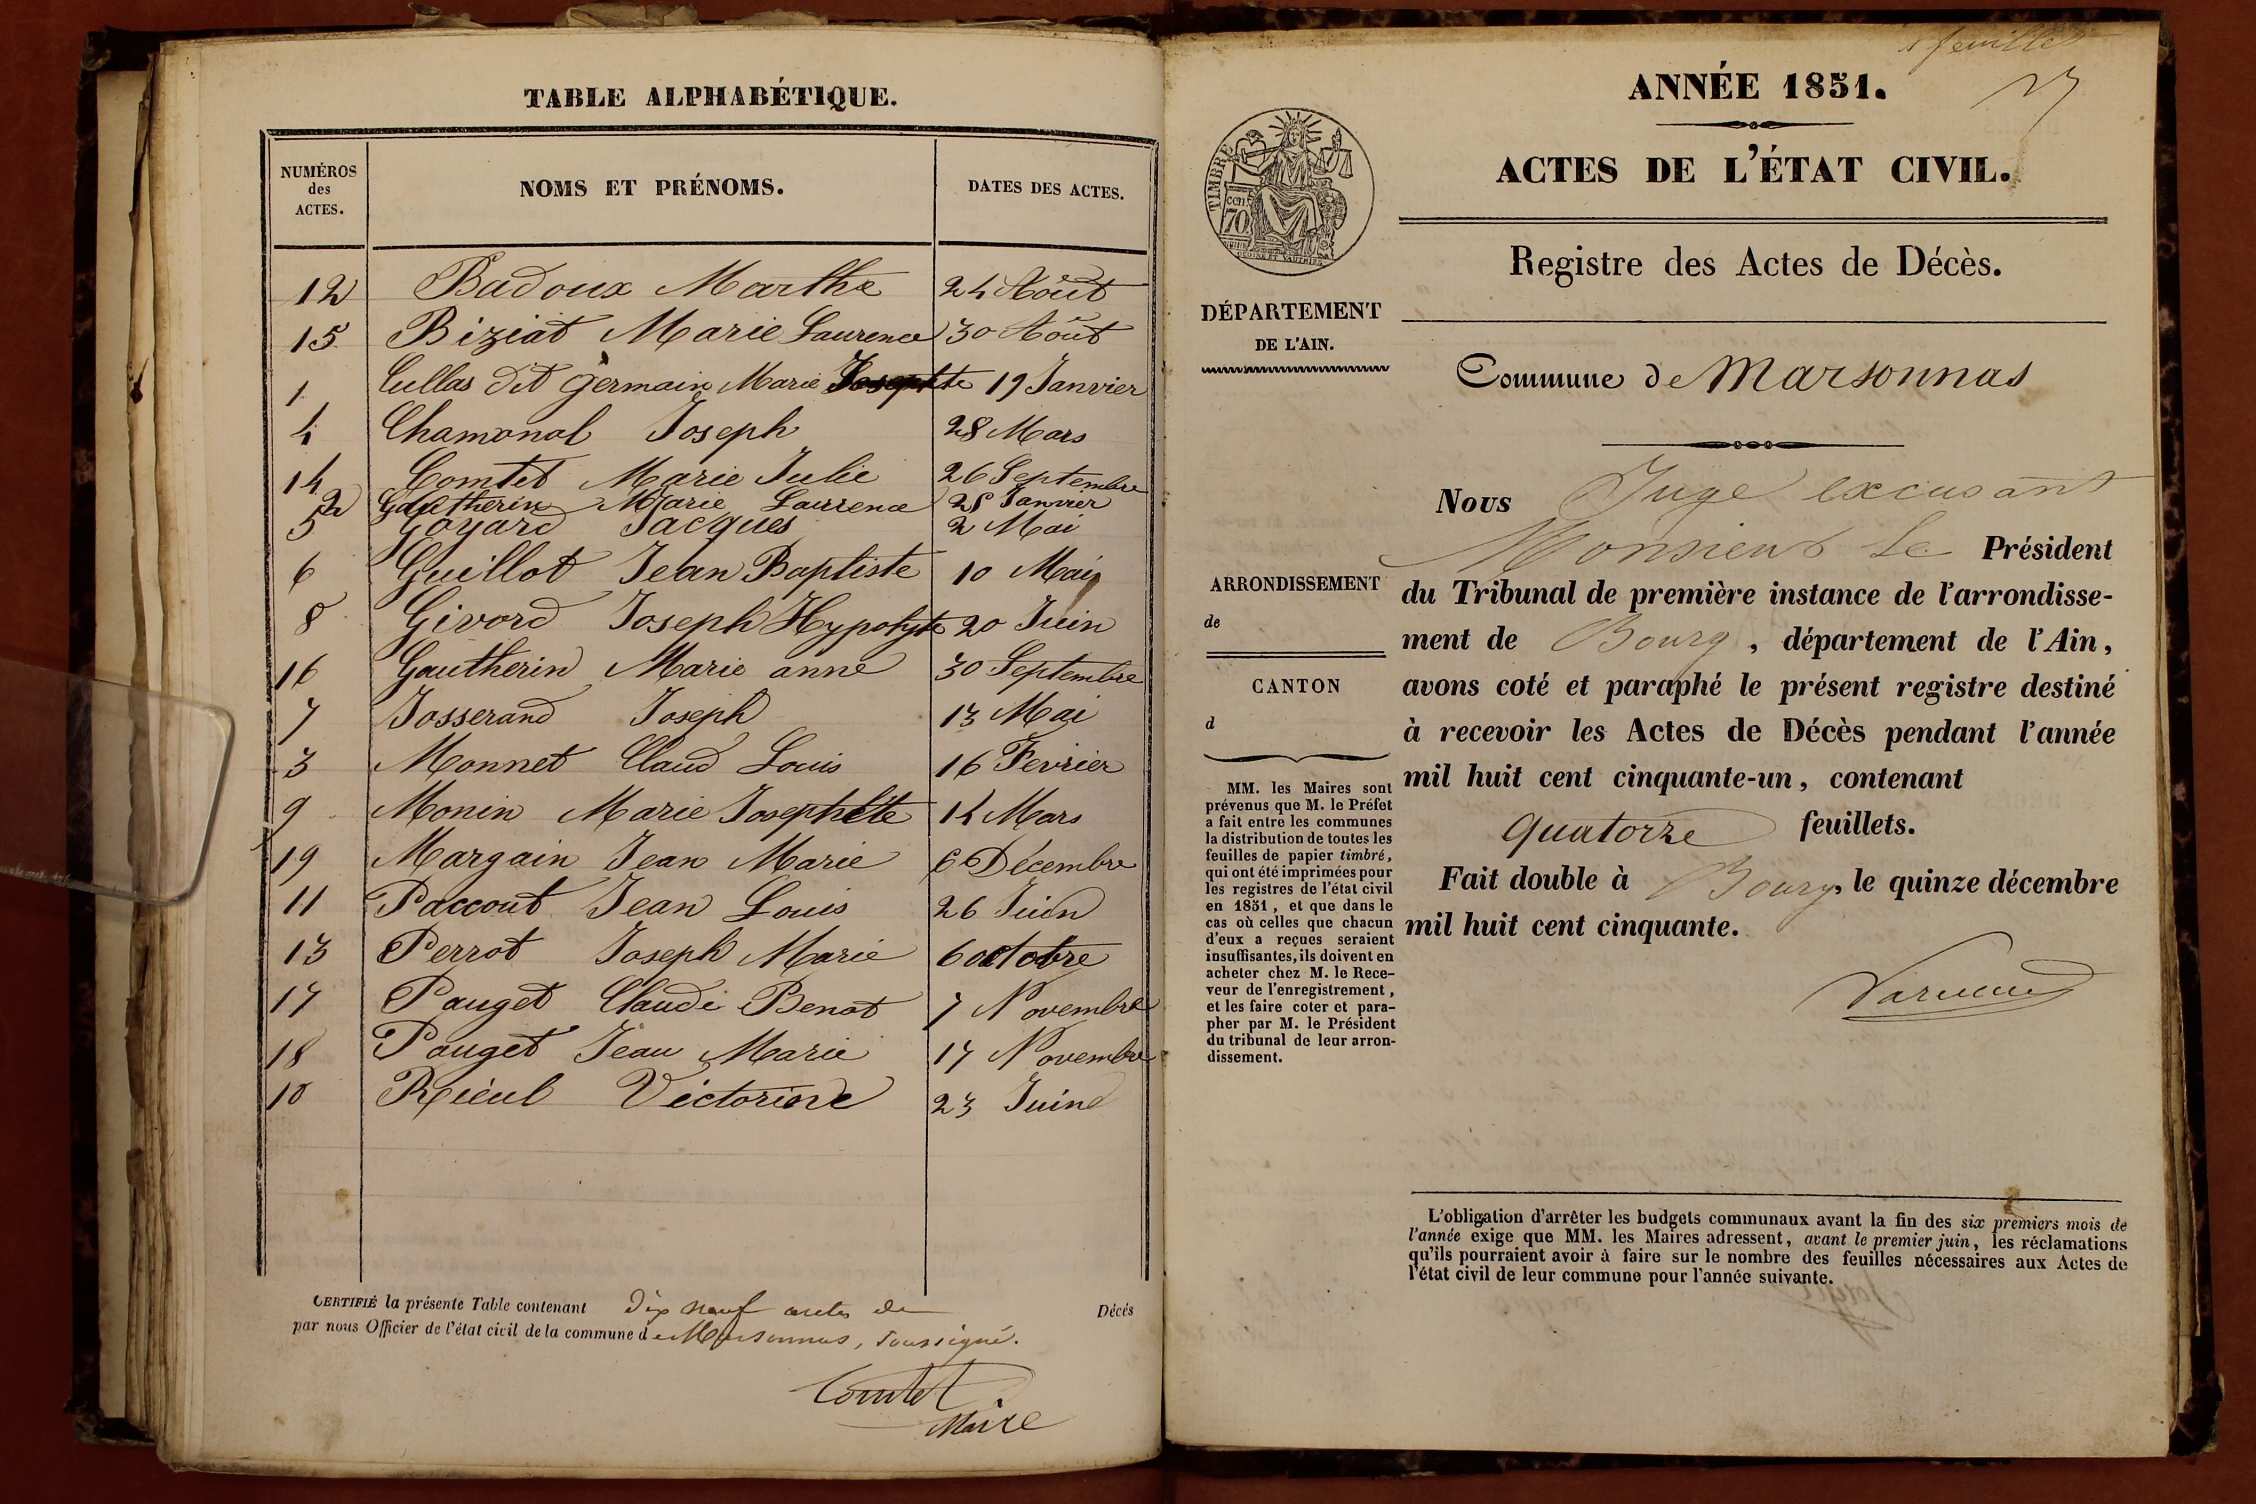 TABLE ALPHABÉTIQUE.
NUMÉROS
des
ACTES.
NOMS ET PRÉNOMS.
DATES DES ACTES.
12 Badoux Marthe 24 Août
15 Biziat Marie Laurence 30 Août
1 Cullas dit germain Marie Josephte 19 Janvier
4 Chamonal Joseph 28 Mars
14 Comtet Marie Julie 26 Septembre
2 Gautherin Marie Laurence 25 Janvier
5 Goyard Jacques 2 Mai
6 Guillot Jean Baptiste 10 Mai
8 Givord Joseph Hypolyte 20 Juin
16 Gautherin Marie anne 30 Septembre
7 Josserand Joseph 13 Mai
3 Monnet Claud Louis 16 Fevrier
9 Monin Marie Josephte 14 Mars
19 Margain Jean Marie 6 Décembre
11 Paccout Jean Louis 26 Juin
13 Perrot Joseph Marie 6 octobre
17 Pauget Claude Benot 7 Novembre
18 Pauget Jean Marie 17 Novembre
10 Rieul Victorine 23 Juin
CERTIFIÉ la présente Table contenant Dix neuf actes de Décés
par nous Officier de l'état civil de la commune de Marsonnas, soussigné.
Comtet
Maire
feuillet
ANNÉE 1851.
ACTES DE L'ÉTAT CIVIL.
TIMBRE
cen.
70
Registre des Actes de Décès.
DÉPARTEMENT
DE L'AIN.
Commune de Marsonnas
Nous Juge excusant
Monsieur Le Président
du Tribunal de première instance de l'arrondisse-
ment de Bourg, département de l'Ain,
avons coté et paraphé le présent registre destiné
à recevoir les Actes de Décès pendant l'année
mil huit cent cinquante-un, contenant
quatorze feuillets.
Fait double à Bourg, le quinze décembre
mil huit cent cinquante.
ARRONDISSEMENT
de
CANTON
d
MM. les Maires sont
prévenus que M. le Préfet
a fait entre les communes
la distribution de toutes les
feuilles de papier timbré,
qui ont été imprimées pour
les registres de l'état civil
en 1851, et que dans le
cas où celles que chacun
d'eux a reçues seraient
insuffisantes, ils doivent en
acheter chez M. le Rece-
veur de l'enregistrement,
et les faire coter et para-
pher par M. le Président
du tribunal de leur arron-
dissement.
L'obligation d'arrêter les budgets communaux avant la fin des six premiers mois de
l'année exige que MM. les Maires adressent, avant le premier juin, les réclamations
qu'ils pourraient avoir à faire sur le nombre des feuilles nécessaires aux Actes de
l'état civil de leur commune pour l'année suivante.